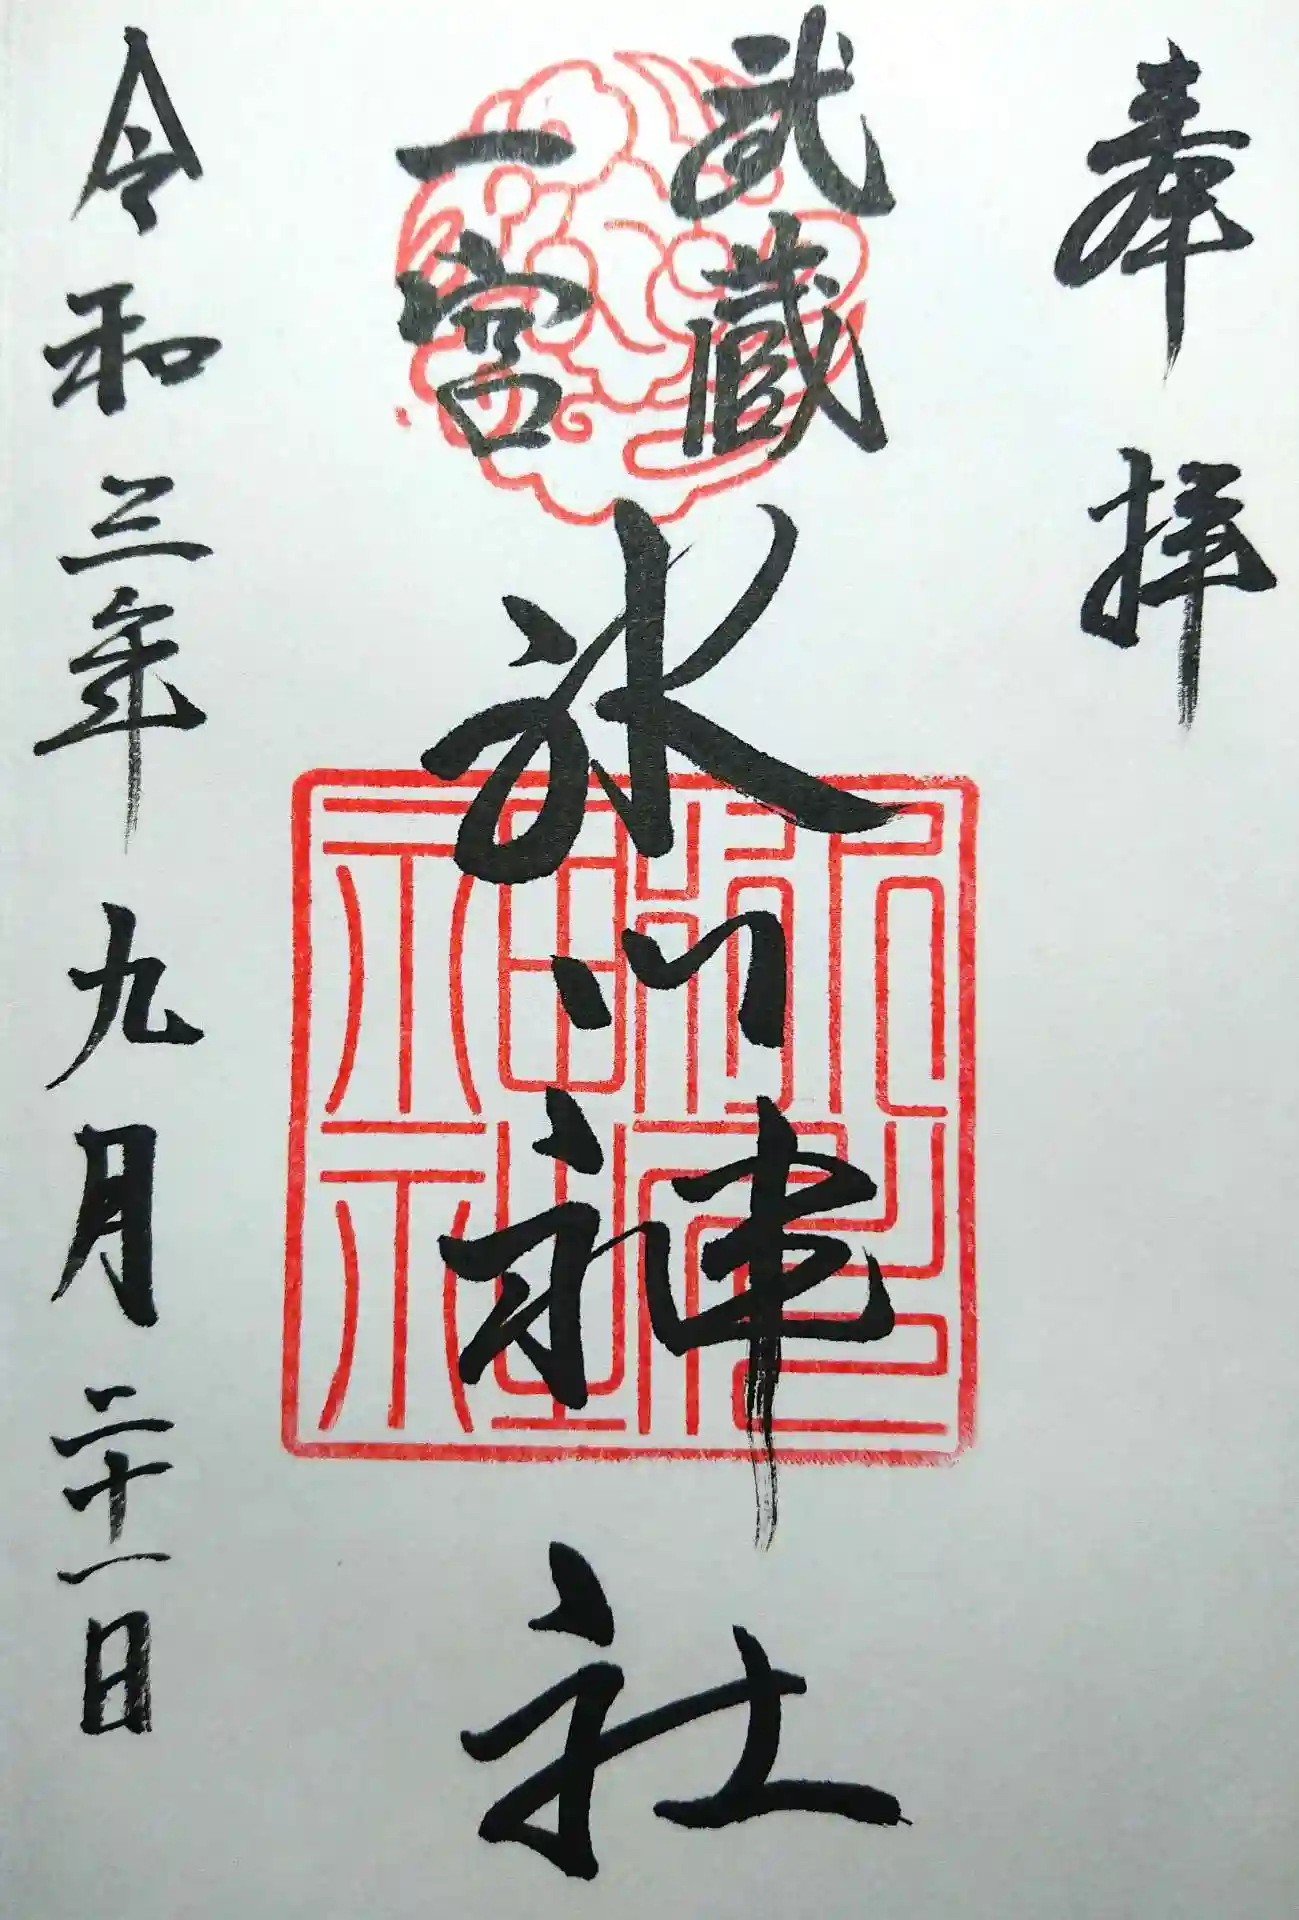 奉拝
武蔵
一宮
氷川神社
令和三年九月二十一日